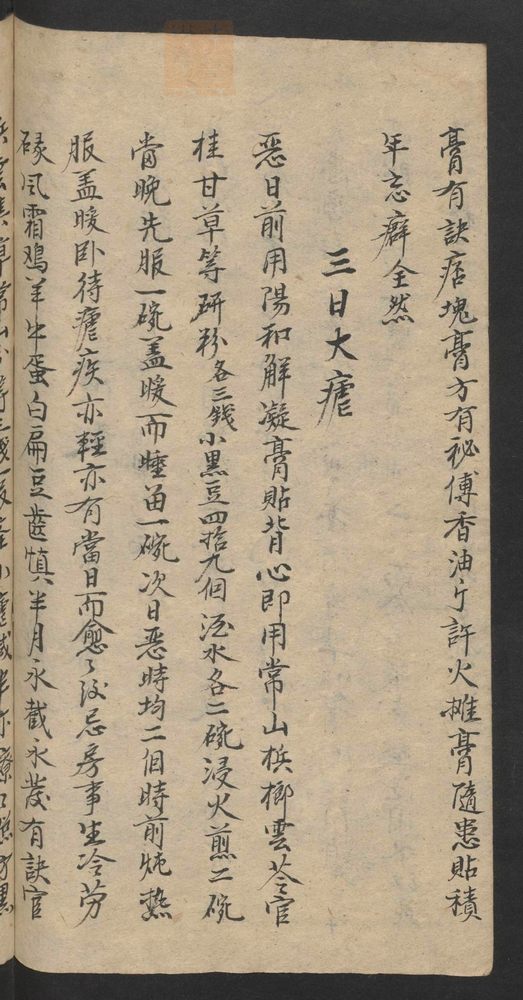 膏有訣痞塊膏方有秘傳香油斤許火攤膏隨患貼積
年忘癖全然
三日大瘧
惡日前用陽和解凝膏貼背心即用常山梹榔雲苓官
桂甘草等研粉各三錢小黑豆四拾九個酒水各二碗浸火煎二碗
當晚先服一碗盖暖而睡留一碗次日惡時均二個時前炖熱
服盖暖卧待瘧疾亦輕亦有當日而愈之後忌房事生冷勞
碌風霜鷄羊牛蛋白扁豆慎半月永截永發有訣官